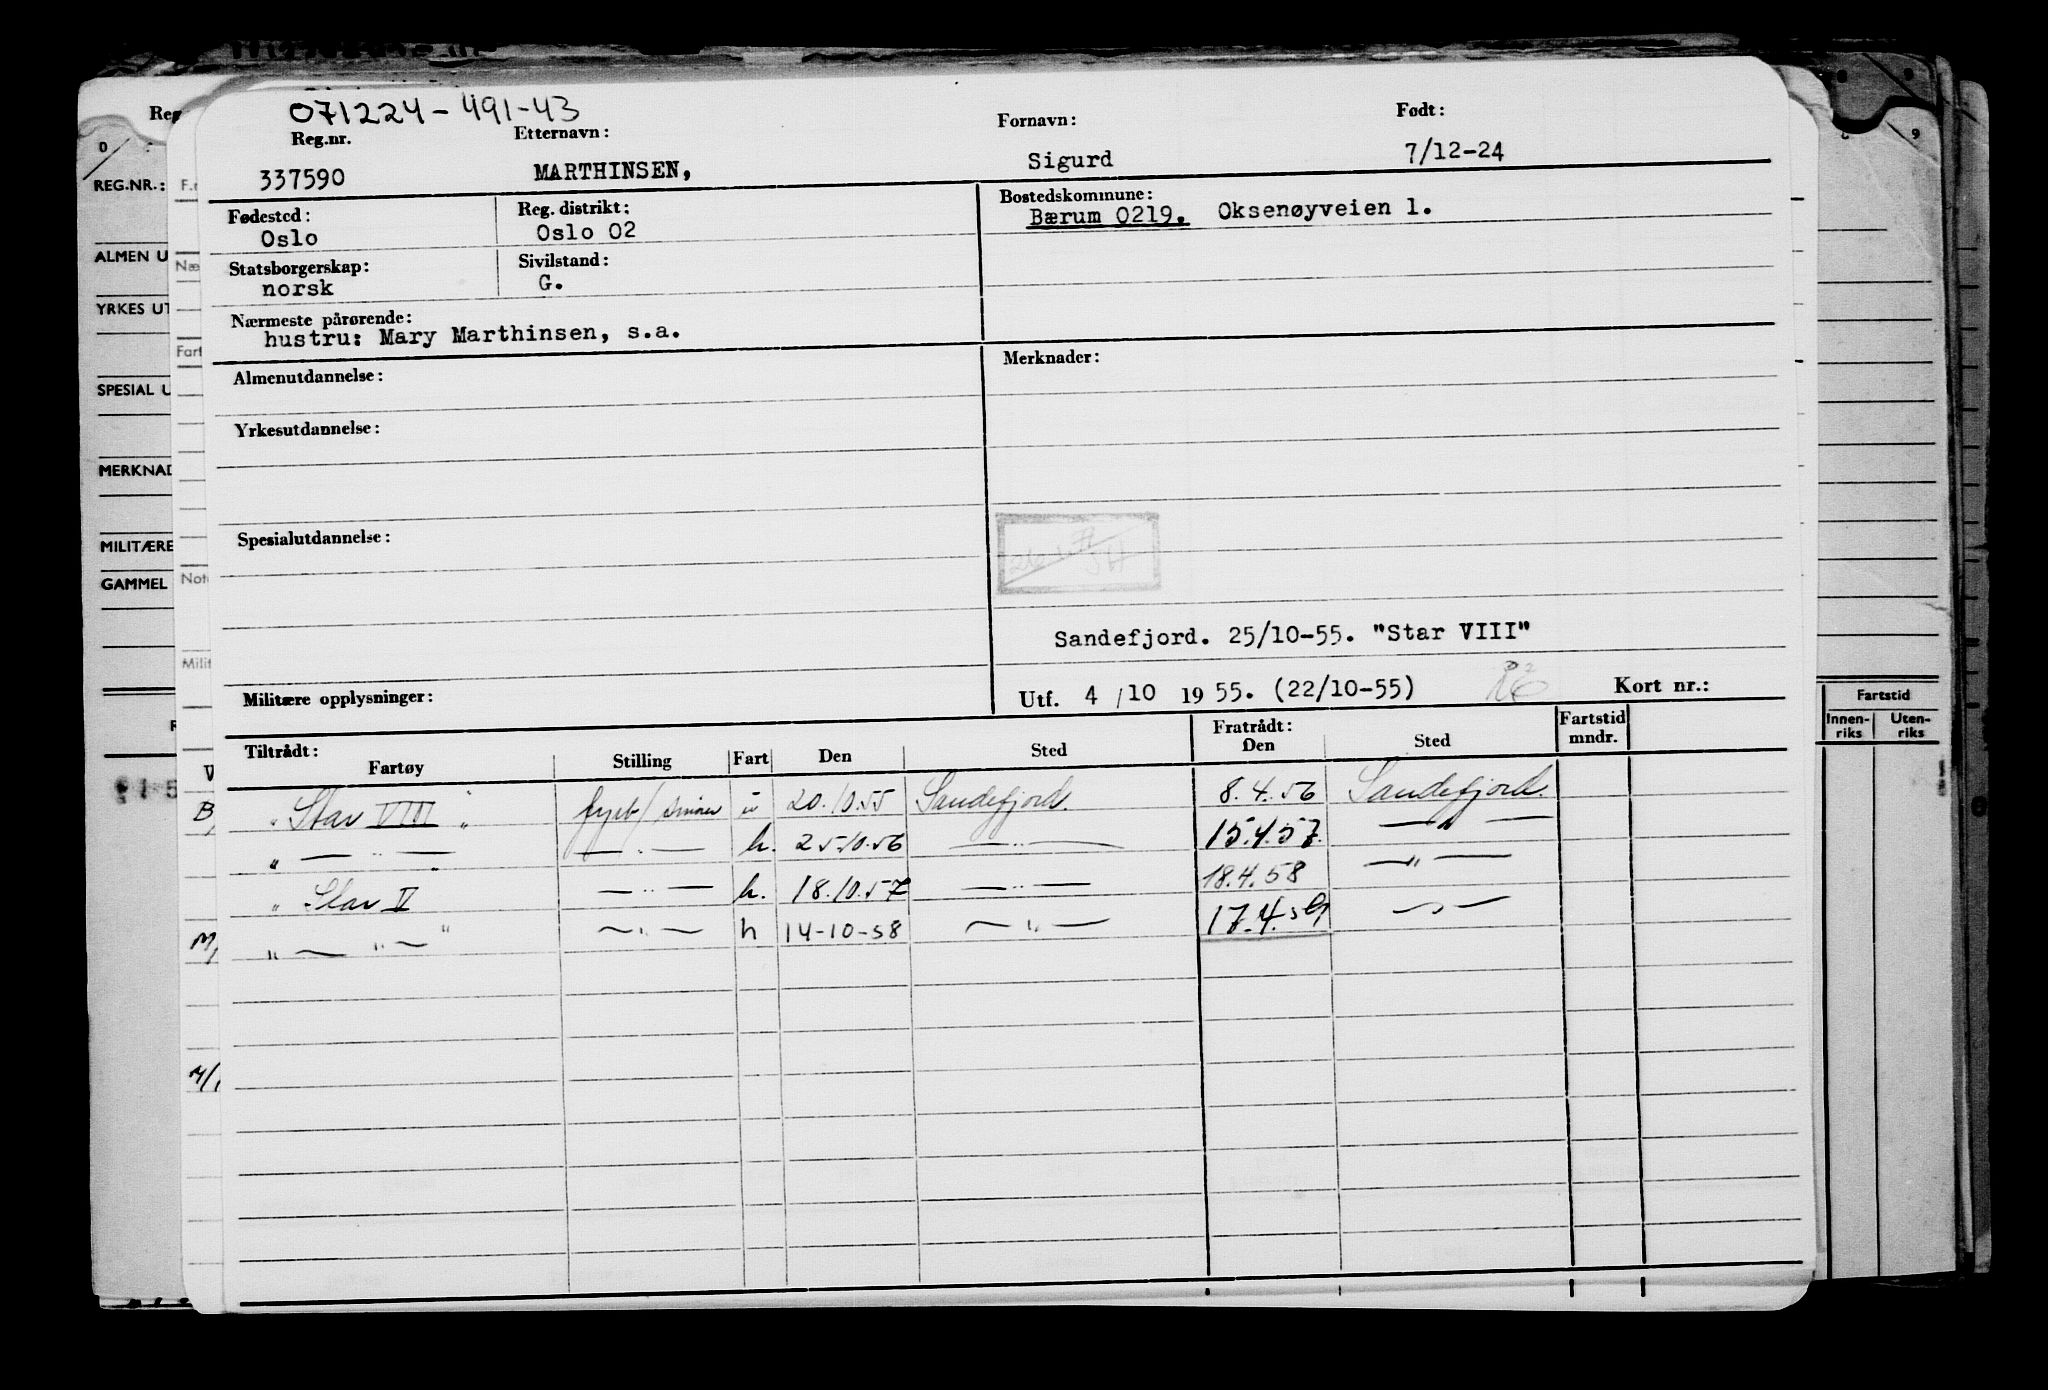 071224-491-43
Reg.nr. Etternavn: Fornavn: Født:
337590 MARTHINSEN, Sigurd 7/12-24
Fødested: Reg. distrikt: Bostedskommune:
Oslo Oslo 02 Bærum 0219. Oksenøyveien 1.
Statsborgerskap: Sivilstand:
norsk G.
Nærmeste pårørende:
hustru: Mary Marthinsen, s.a.
Almenutdannelse: Merknader:
Yrkesutdannelse:
Spesialutdannelse:
Sandefjord. 25/10-55. "Star VIII"
Militære opplysninger: Utf. 4 / 10 19 55. (22/10-55) Kort nr.:
Tiltrådt: Fratrådt: Fartstid
Fartøy Stilling Fart Den Sted Den Sted mndr.
"Star VIII" fyrb/ u 20.10.55 Sandefjord. 8.4.56 Sandefjord.
" — " — " — " — h. 25.10.56 — " — 15.4.57. — " —
" Star V — " — h. 18.10.57 — " — 18.4.58 — " —
" — " — " — " — h 14-10-58 — " — 17.4.59 — " —
Reg
0
9
REG.NR.:
ALMEN U
YRKES UT
SPESIAL U
MERKNAD
MILITÆRE
GAMMEL
Næ
Fart
Note
Milit
Fartstid
Innen-riks Uten-riks